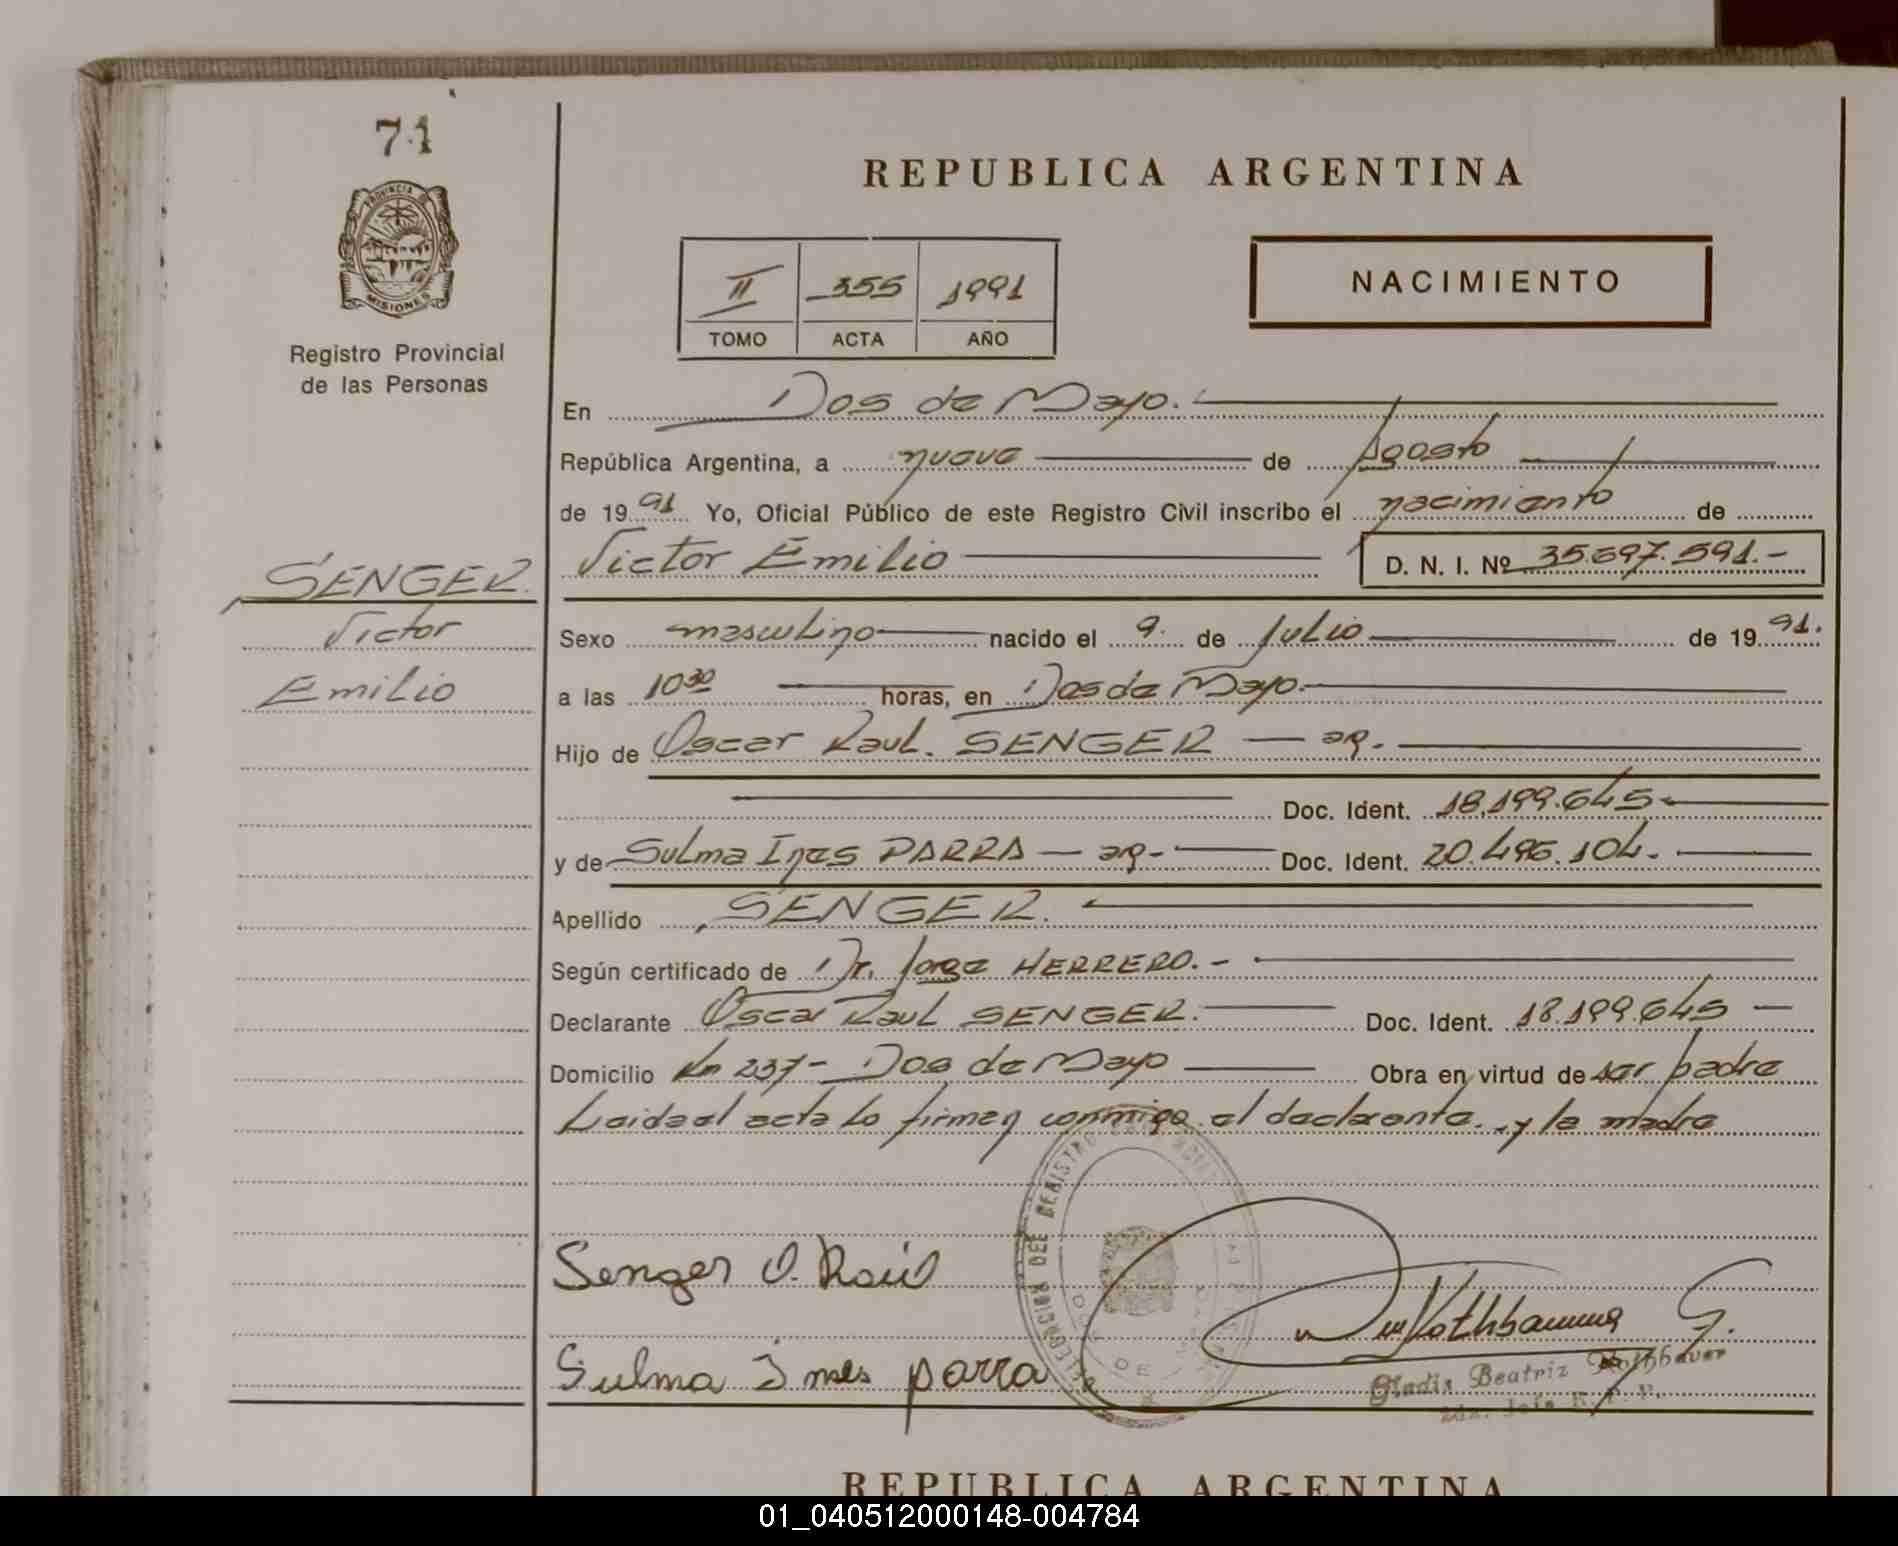 71
PROVINCIA
MISIONES
Registro Provincial
de las Personas
SENGER.
Victor
Emilio
REPUBLICA ARGENTINA
II 355 1991
TOMO ACTA AÑO
NACIMIENTO
En Dos de Mayo.
República Argentina, a nueve de Agosto
de 1991 Yo, Oficial Público de este Registro Civil inscribo el nacimiento de
Victor Emilio D. N. I. Nº 35.697.591.-
Sexo masculino nacido el 9. de Julio de 1991.
a las 10 30 horas, en Dos de Mayo.
Hijo de Oscar Raul. SENGER — arg.
Doc. Ident. 18.199.645
y de Sulma Ines PARRA — arg- Doc. Ident. 20.496.104.
Apellido SENGER.
Según certificado de Dr. Jorge HERRERO. -
Declarante Oscar Raul SENGER. Doc. Ident. 18.199.645 —
Domicilio Km 237- Dos de Mayo Obra en virtud de ser padre
Leida el acta lo firman conmigo el declarante. y la madre
Senger O. Raúl
Rothbauer G.
Sulma Ines parra
Gladis Beatriz Rothbauer
REPUBLICA ARGENTINA
01_040512000148-004784